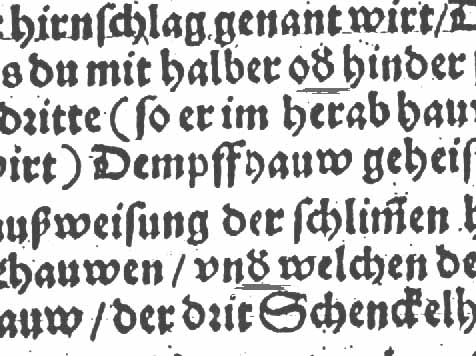 hirnſchlag genant wirt/D
s du mit halber od̕ hinder
dꝛitte (ſo er im herab hau
wirt) Dempffhauw geheiſ
außweiſung der ſchlim̃en
hauwen / vnd̕ welchen de
auw / der dꝛit Schenckelh